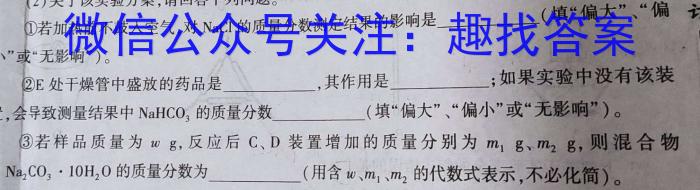 (2)关于该实验方案,请回答下列问题。
①若加热前不通入空气,对NaCl的质量分数测定结果的影响是______(填“偏大”、“偏
小”或“无影响”)。
微信公众号关注:趣找答案
②E处干燥管中盛放的药品是______,其作用是______;如果实验中没有该装
,会导致测量结果中NaHCO₃的质量分数______(填“偏大”、“偏小”或“无影响”)。
③若样品质量为 w g,反应后C、D装置增加的质量分别为 m₁ g、m₂ g,则混合物
Na₂CO₃·10H₂O的质量分数为______(用含w、m₁、m₂的代数式表示,不必化简)。